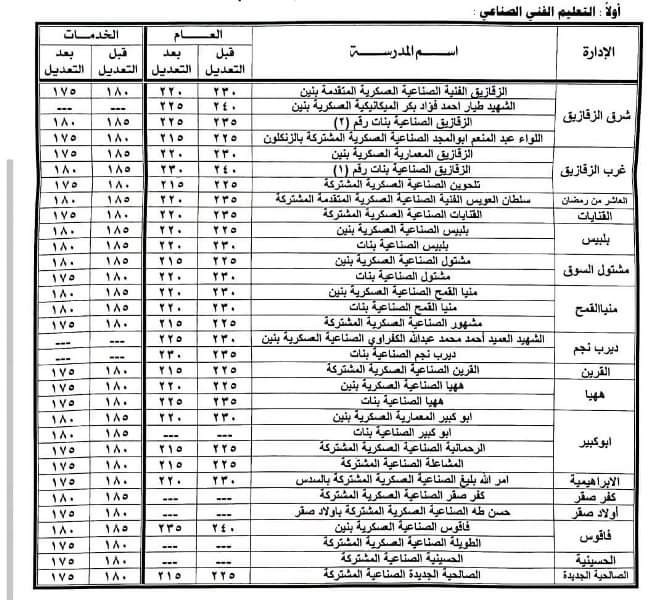 أولاً : التعليم الفني الصناعي :
الإدارة اسم المدرسة العـــام الخدمات
قبل التعديل بعد التعديل قبل التعديل بعد التعديل
شرق الزقازيق الزقازيق الفنية الصناعية العسكرية المتقدمة بنين ٢٣٠ ٢٢٠ ١٨٠ ١٧٥
الشهيد طيار احمد فؤاد بكر الميكانيكية العسكرية بنين ٢٤٠ ٢٢٥ --- ---
الزقازيق الصناعية بنات رقم (٢) ٢٣٥ ٢٢٥ ١٨٥ ١٨٠
اللواء عبد المنعم ابوالمجد الصناعية العسكرية المشتركة بالزنكلون ٢٢٥ ٢١٥ ١٨٥ ١٧٥
غرب الزقازيق الزقازيق المعمارية العسكرية بنين ٢٣٠ ٢٢٠ ١٨٥ ١٧٥
الزقازيق الصناعية بنات رقم (١) ٢٤٠ ٢٣٠ ١٨٥ ١٨٠
تلحوين الصناعية العسكرية المشتركة ٢٢٥ ٢١٥ ١٨٠ ١٧٥
العاشر من رمضان سلطان العويس الفنية الصناعية العسكرية المتقدمة المشتركة ٢٣٥ ٢٢٠ ١٨٥ ١٨٠
القنايات القنايات الصناعية العسكرية المشتركة ٢٣٥ ٢٢٠ ١٨٠ ١٧٥
بلبيس بلبيس الصناعية العسكرية بنين ٢٢٥ ٢٢٠ ١٨٥ ١٨٠
بلبيس الصناعية بنات ٢٣٠ ٢٢٠ ١٨٥ ١٨٠
مشتول السوق مشتول الصناعية العسكرية بنين ٢٢٥ ٢١٥ ١٨٥ ١٨٠
مشتول الصناعية بنات ٢٣٠ ٢٢٠ ١٨٠ ١٧٥
منياالقمح منيا القمح الصناعية العسكرية بنين ٢٣٠ ٢٢٠ ١٨٥ ١٨٠
منيا القمح الصناعية بنات ٢٣٠ ٢٢٠ ١٨٥ ١٨٠
مشهور الصناعية العسكرية المشتركة ٢٢٥ ٢١٥ ١٨٠ ١٧٥
ديرب نجم الشهيد العميد أحمد محمد عبدالله الكفراوي الصناعية العسكرية بنين ٢٣٠ ٢٢٥ --- ---
ديرب نجم الصناعية بنات ٢٣٥ ٢٣٠ --- ---
القرين القرين الصناعية العسكرية المشتركة ٢٢٥ ٢١٥ ١٨٠ ١٧٥
ههيا ههيا الصناعية العسكرية بنين ٢٢٥ ٢٢٠ ١٨٠ ١٧٥
ههيا الصناعية بنات ٢٣٥ ٢٢٥ ١٨٠ ١٧٥
ابوكبير ابو كبير المعمارية العسكرية بنين ٢٣٠ ٢٢٠ ١٨٥ ١٨٠
ابو كبير الصناعية بنات --- --- ١٨٥ ١٨٠
الرحمانية الصناعية العسكرية المشتركة ٢٢٥ ٢١٥ ١٨٠ ١٧٥
المشاعلة الصناعية المشتركة ٢٢٥ ٢١٥ ١٨٠ ١٧٥
الابراهيمية امر الله بليغ الصناعية العسكرية المشتركة بالسدس ٢٣٠ ٢٢٠ ١٨٠ ١٧٥
كفر صقر كفر صقر الصناعية العسكرية المشتركة --- --- ١٨٥ ١٨٠
أولاد صقر حسن طه الصناعية العسكرية المشتركة باولاد صقر --- --- ١٨٠ ١٧٥
فاقوس فاقوس الصناعية العسكرية بنين ٢٤٠ ٢٣٥ ١٨٥ ١٨٠
الطويلة الصناعية العسكرية المشتركة --- --- ١٨٠ ١٧٥
الحسينية الحسينية الصناعية العسكرية المشتركة --- --- ١٨٠ ١٧٥
الصالحية الجديدة الصالحية الجديدة الصناعية المشتركة ٢٢٥ ٢١٥ ١٨٠ ١٧٥